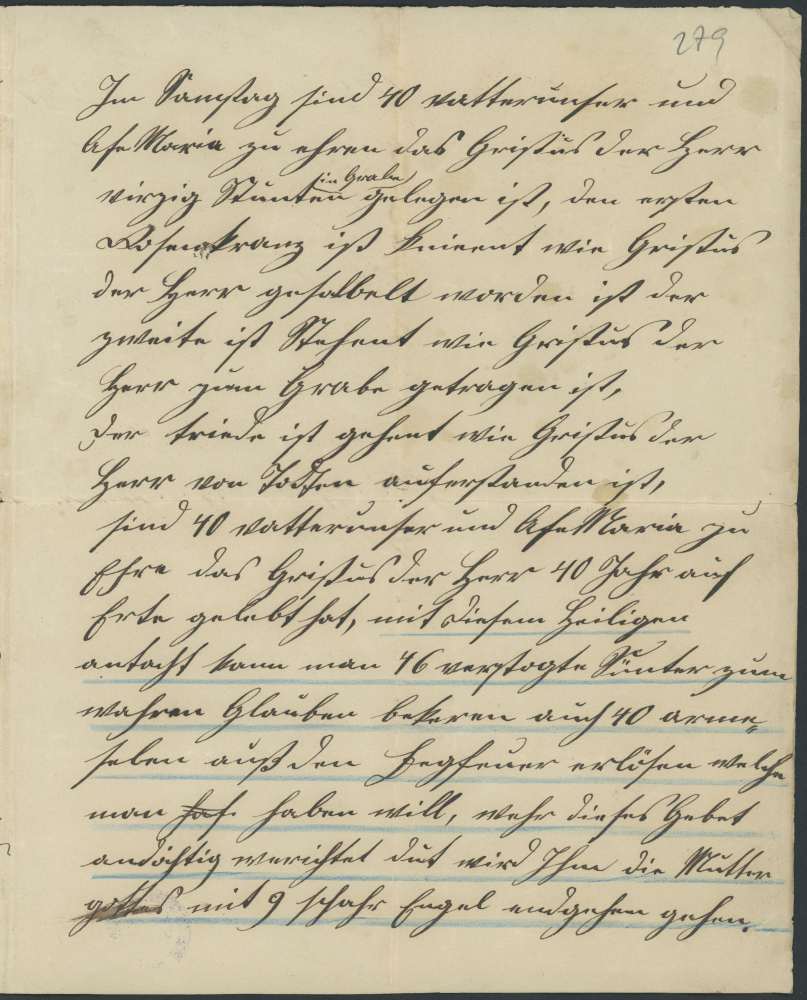 279
Im Samstag sind 40 vatterunser und
Afe Maria zu ehren das Gristus der Herr
virzig Stunten in Grabe gelegen ist, den ersten
Rosenkranz ist knieent wie Gristus
der Herr gesalbelt worden ist der
zweite ist Stehent wie Gristus der
Herr zum Grabe getragen ist,
der triede ist gehent wie Gristus der
Herr von Todten auferstanden ist,
sind 40 vatterunser und Afe Maria zu
Ehre das Gristus der Herr 40 Jahr auf
Erte gelebt hat, mit diesem Heiligen
antacht kann man 46 verstogte Sünter zum
wahren Glauben bekeren auch 40 arme
selen auß den Fegfeuer erlösen welche
man haf. haben will, wehr dieses Gebet
andächtig verichtet dut wird Ihm die Mutter
gottes mit 9 schahr Engel endgehen gehen.